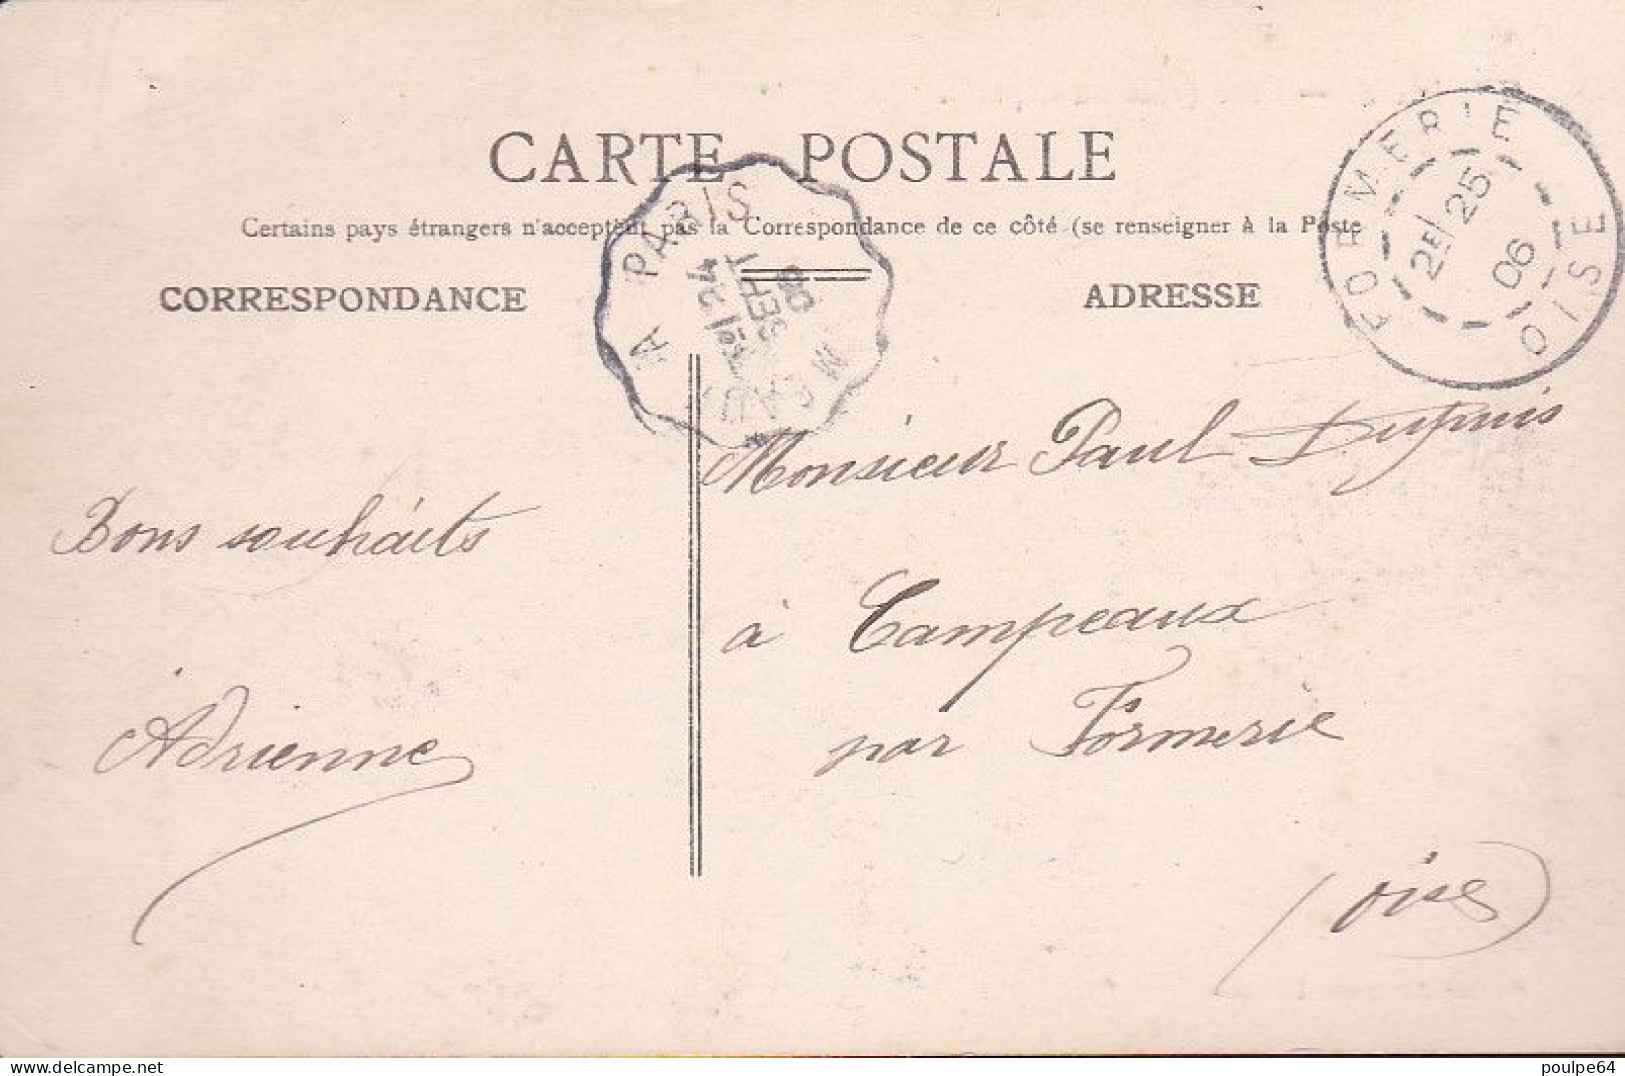 CARTE POSTALE
Certains pays étrangers n'acceptent pas la Correspondance de ce côté (se renseigner à la Poste
CORRESPONDANCE
ADRESSE
A PARIS
24
SEPT
06
FORMERIE
2E/25
06
OISE
Bons souhaits
Adrienne
Monsieur Paul Dupuis
à Campeaux
par Formerie
(oise)
delcampe.net
poulpe64